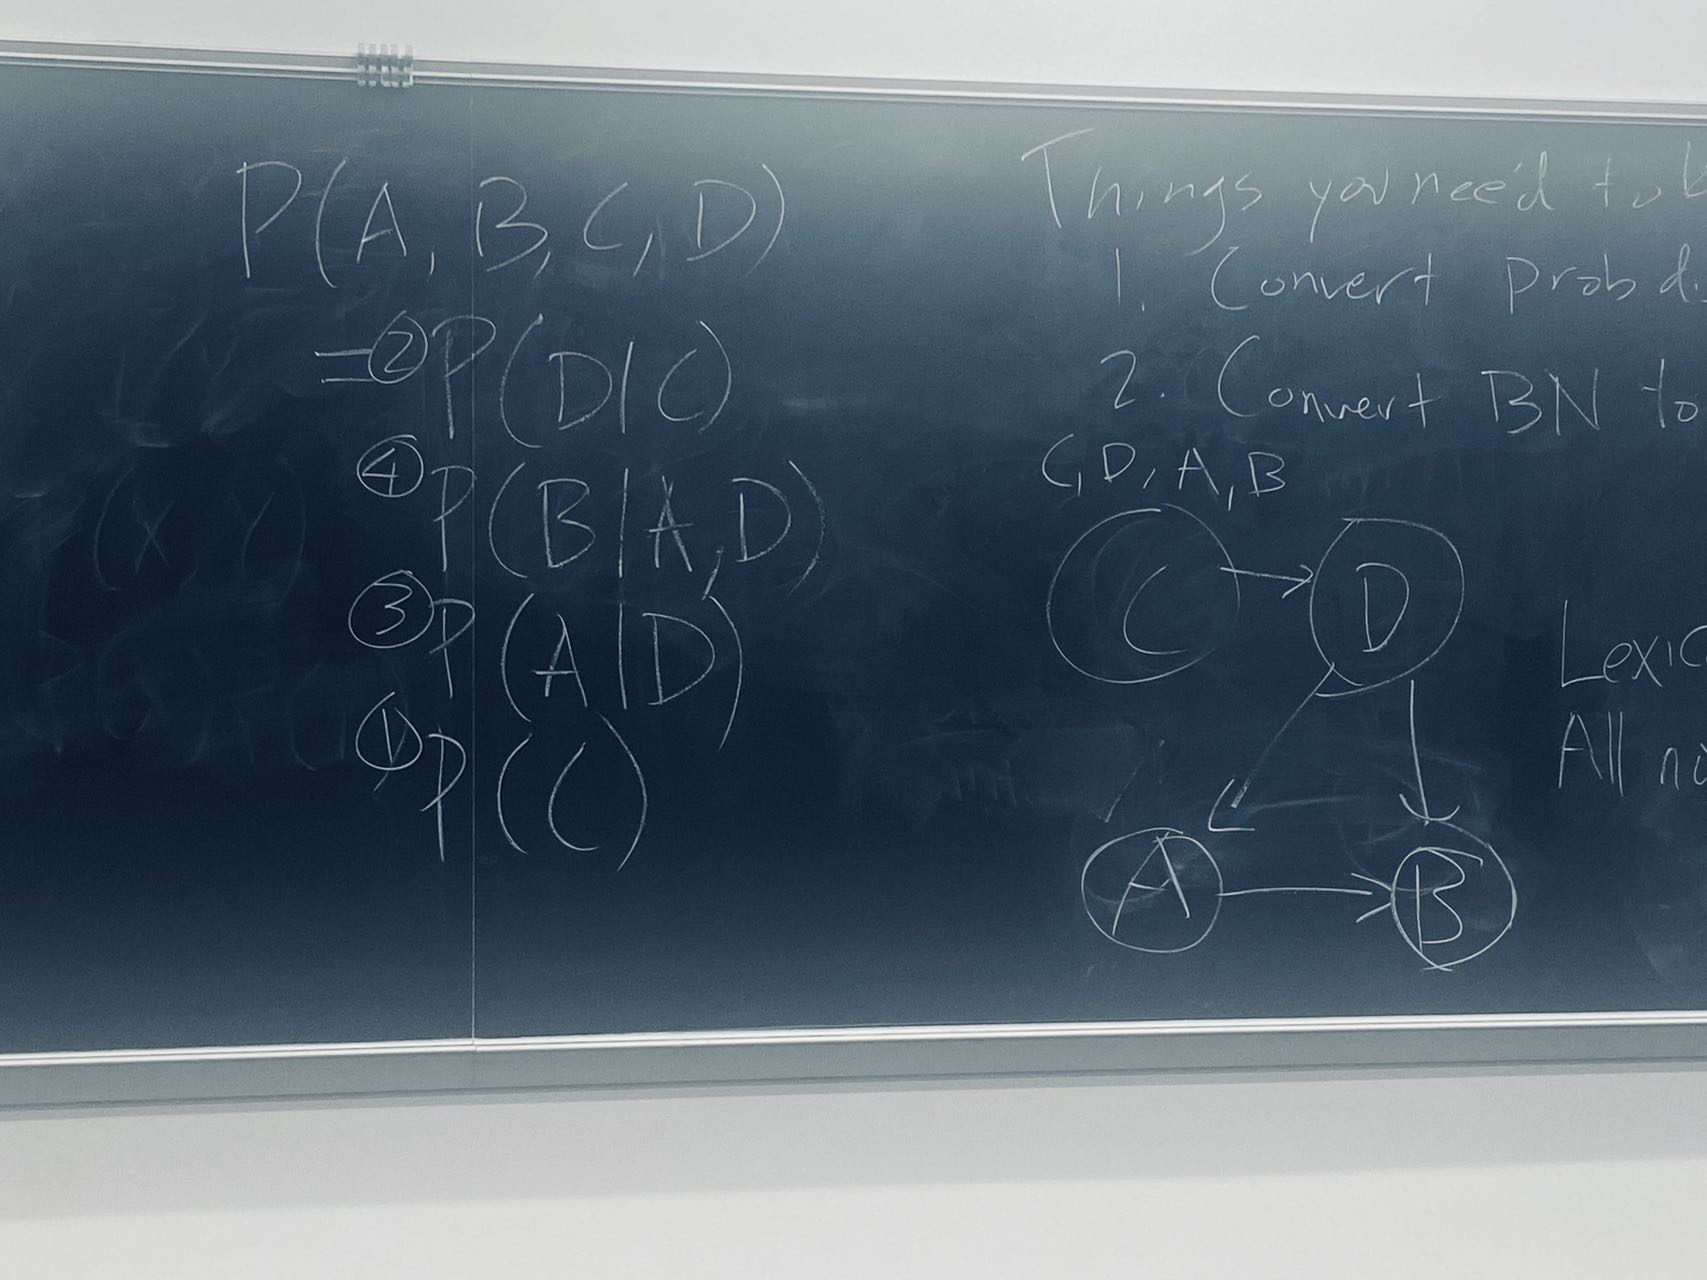 P(A, B, C, D)
= ② P(D|C)
④ P(B|A,D)
③ P(A|D)
① P(C)
(X Y)
Things you need to
1. Convert prob d.
2. Convert BN to
C, D, A, B
C
D
A
B
Lexic
All no